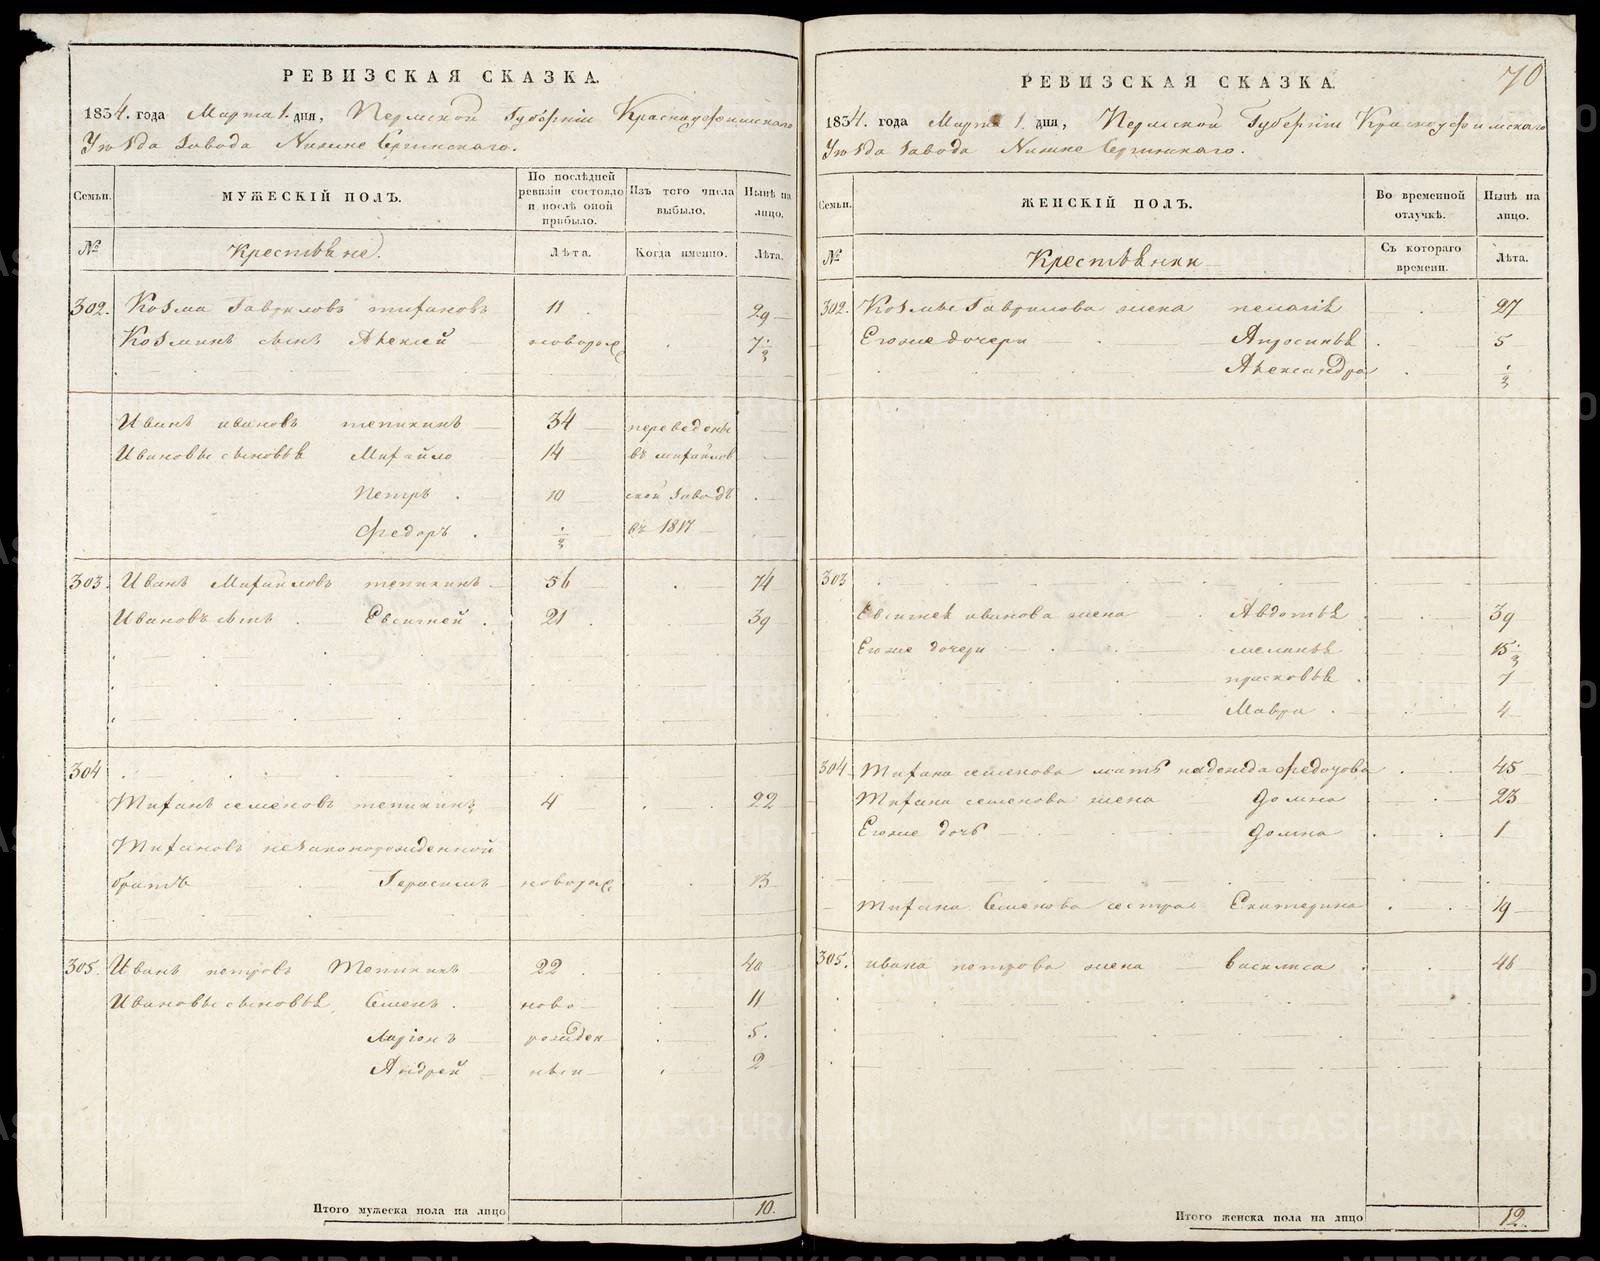 РЕВИЗСКАЯ СКАЗКА.
1834. года Марта 1. дня, Пермской Губерніи Красноуфимскаго
Уѣзда Завода Нижне Сергинскаго.
Семьи. МУЖЕСКІЙ ПОЛЪ. По послѣдней ревизіи состояло и послѣ оной прибыло. Изъ того числа выбыло. Нынѣ на лицо.
№ Крестьяне. Лѣта. Когда именно. Лѣта.
302. Козма Гавриловъ 11 29
Козминъ сынъ Алексей новорож 7 1/2
Иванъ ивановъ тепикинъ 34 переведены
Ивановы сыновья Михайло 14 въ михайлов
Петръ 10 ской заводъ
Федоръ 1/2 въ 1817
303. Иванъ Михайловъ тепикинъ 56 74
Ивановъ сынъ Евсигней 21 39
304
Тифанъ семеновъ тепикинъ 4 22
Тифановъ незаконорожденной
братъ Герасимъ новорож 13
305. Иванъ петровъ Тепикинъ 22 40
Ивановы сыновья Семенъ ново 11
Ларіонъ рожден 5.
Андрей ные 2
Итого мужеска пола на лицо 10.
70
РЕВИЗСКАЯ СКАЗКА.
1834. года Марта 1. дня, Пермской Губерніи Красноуфимскаго
Уѣзда Завода Нижне Сергинскаго.
Семьи. ЖЕНСКІЙ ПОЛЪ. Во временной отлучкѣ. Нынѣ на лицо.
№ Крестьянки Съ котораго времени. Лѣта.
302. Козмы Гаврилова жена пелагія 27
Егоже дочери Апросинья 5
Александра 1/2
303
Евсигнея иванова жена Авдотья 39
Егоже дочери меланья 15 1/2
прасковья 7
Мавра 4
304. Тифана семенова мать надежда Федотова 45
Тифана семенова жена Домна 23
Егоже дочь Домна 1
Тифана Семенова сестра Екатерина 19
305. ивана петрова жена василиса 46
Итого женска пола на лицо 12.
METRIKI.GASO-URAL.RU